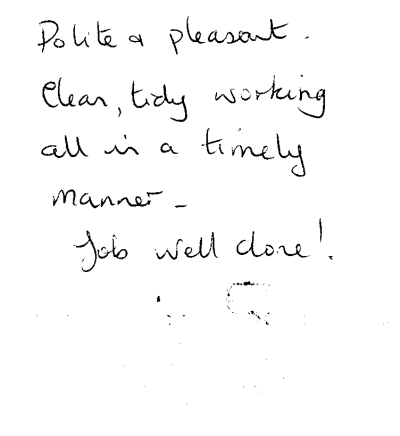 Polite & pleasant.
Clean, tidy working
all in a timely
manner -
Job well done!